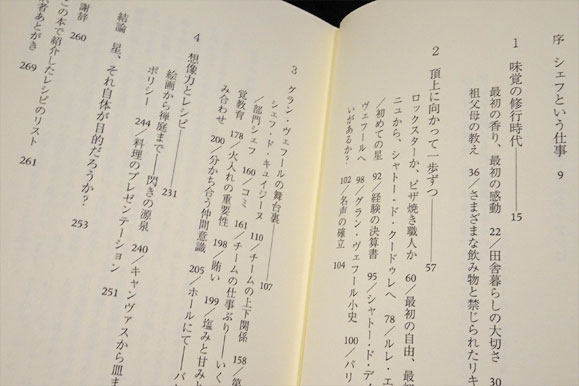 序 シェフという仕事 9
1 味覚の修行時代 15
最初の香り、最初の感動 22/田舎暮らしの大切さ 30
祖父母の教え 36/さまざまな飲み物と禁じられたリキ
2 頂上に向かって一歩ずつ 57
ロックスターか、ピザ焼き職人か 60/最初の自由、最初
ニュから、シャトー・ド・クードゥレへ 78/ルレ・エ
/初めての星 92/経験の決算書 95/シャトー・ド・ディ
ヴェフールへ 98/グラン・ヴェフール小史 100/パリ
いがあるか? 102/名声の確立 104
3 グラン・ヴェフールの舞台裏 107
シェフ・ド・キュイジーヌ 110/チームの上下関係 158/第
/部門シェフ 160/コミ 161/チームの仕事ぶり――いく
覚教育 178/火入れの重要性 198/賄い 199/塩みと甘みと
み合わせ 200/分かち合う仲間意識 205/ホールにて――パン
4 想像力とレシピ 231
絵画から禅庭まで――閃きの源泉 240/キャンヴァスから皿ま
ポリシー 244/料理のプレゼンテーション 251
結論 星、それ自体が目的だろうか? 253
謝辞 260
この本で紹介したレシピのリスト 261
者あとがき 269